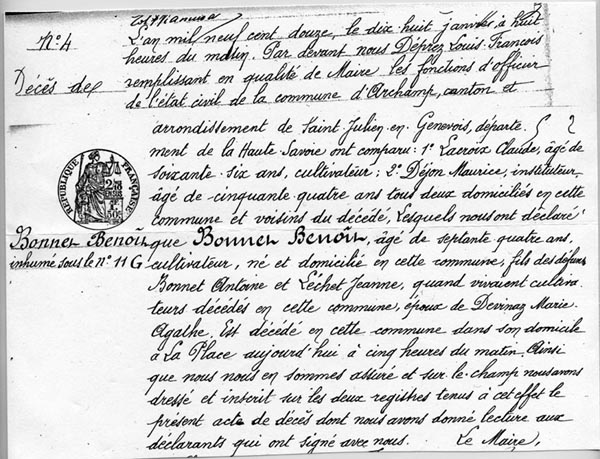 N° 4
Décès de
L'an mil neuf cent douze, le dix huit janvier à huit
heures du matin. Par devant nous Déprez Louis François
remplissant en qualité de Maire les fonctions d'officier
de l'état civil de la commune d'Archamp, canton et
arrondissement de Saint Julien-en-Genevois, départe-
ment de la Haute Savoie ont comparu: 1° Lacroix Claude, âgé de
soixante-six ans, cultivateur; 2° Déjon Maurice, instituteur
âgé de cinquante quatre ans tous deux domiciliés en cette
commune et voisins du décédé, Lesquels nous ont déclaré
RÉPUBLIQUE FRANÇAISE
Bonnet Benoît
inhumé sous le N° 11 G
que Bonnet Benoît, âgé de septante quatre ans,
cultivateur, né et domicilié en cette commune, fils des défunts
Bonnet Antoine et Léchet Jeanne, quand vivaient cultiva-
teurs décédés en cette commune, époux de Devinaz Marie
Agathe. Est décédé en cette commune dans son domicile
à La Place aujourd'hui à cinq heures du matin. Ainsi
que nous nous en sommes assuré et sur le-champ nous avons
dressé et inscrit sur les deux registres tenus à cet effet le
présent acte de décès dont nous avons donné lecture aux
déclarants qui ont signé avec nous. Le Maire,